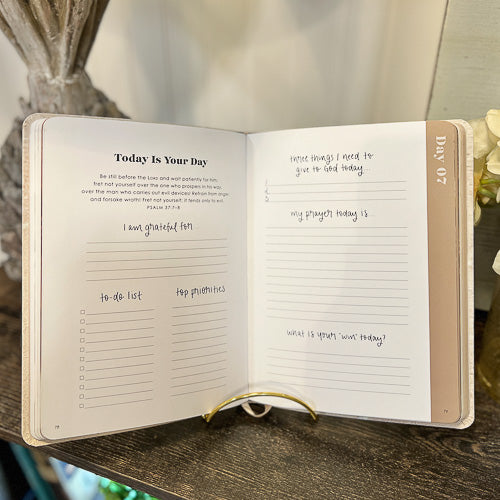 Today Is Your Day
Be still before the LORD and wait patiently for him;
fret not yourself over the one who prospers in his way,
over the man who carries out evil devices! Refrain from anger
and forsake wrath! Fret not yourself; it tends only to evil.
PSALM 37:7–8
I am grateful for...
to-do list
top priorities
78
three things I need to
give to God today...
1
2
3
my prayer today is...
what is your "win" today?
Day 07
79